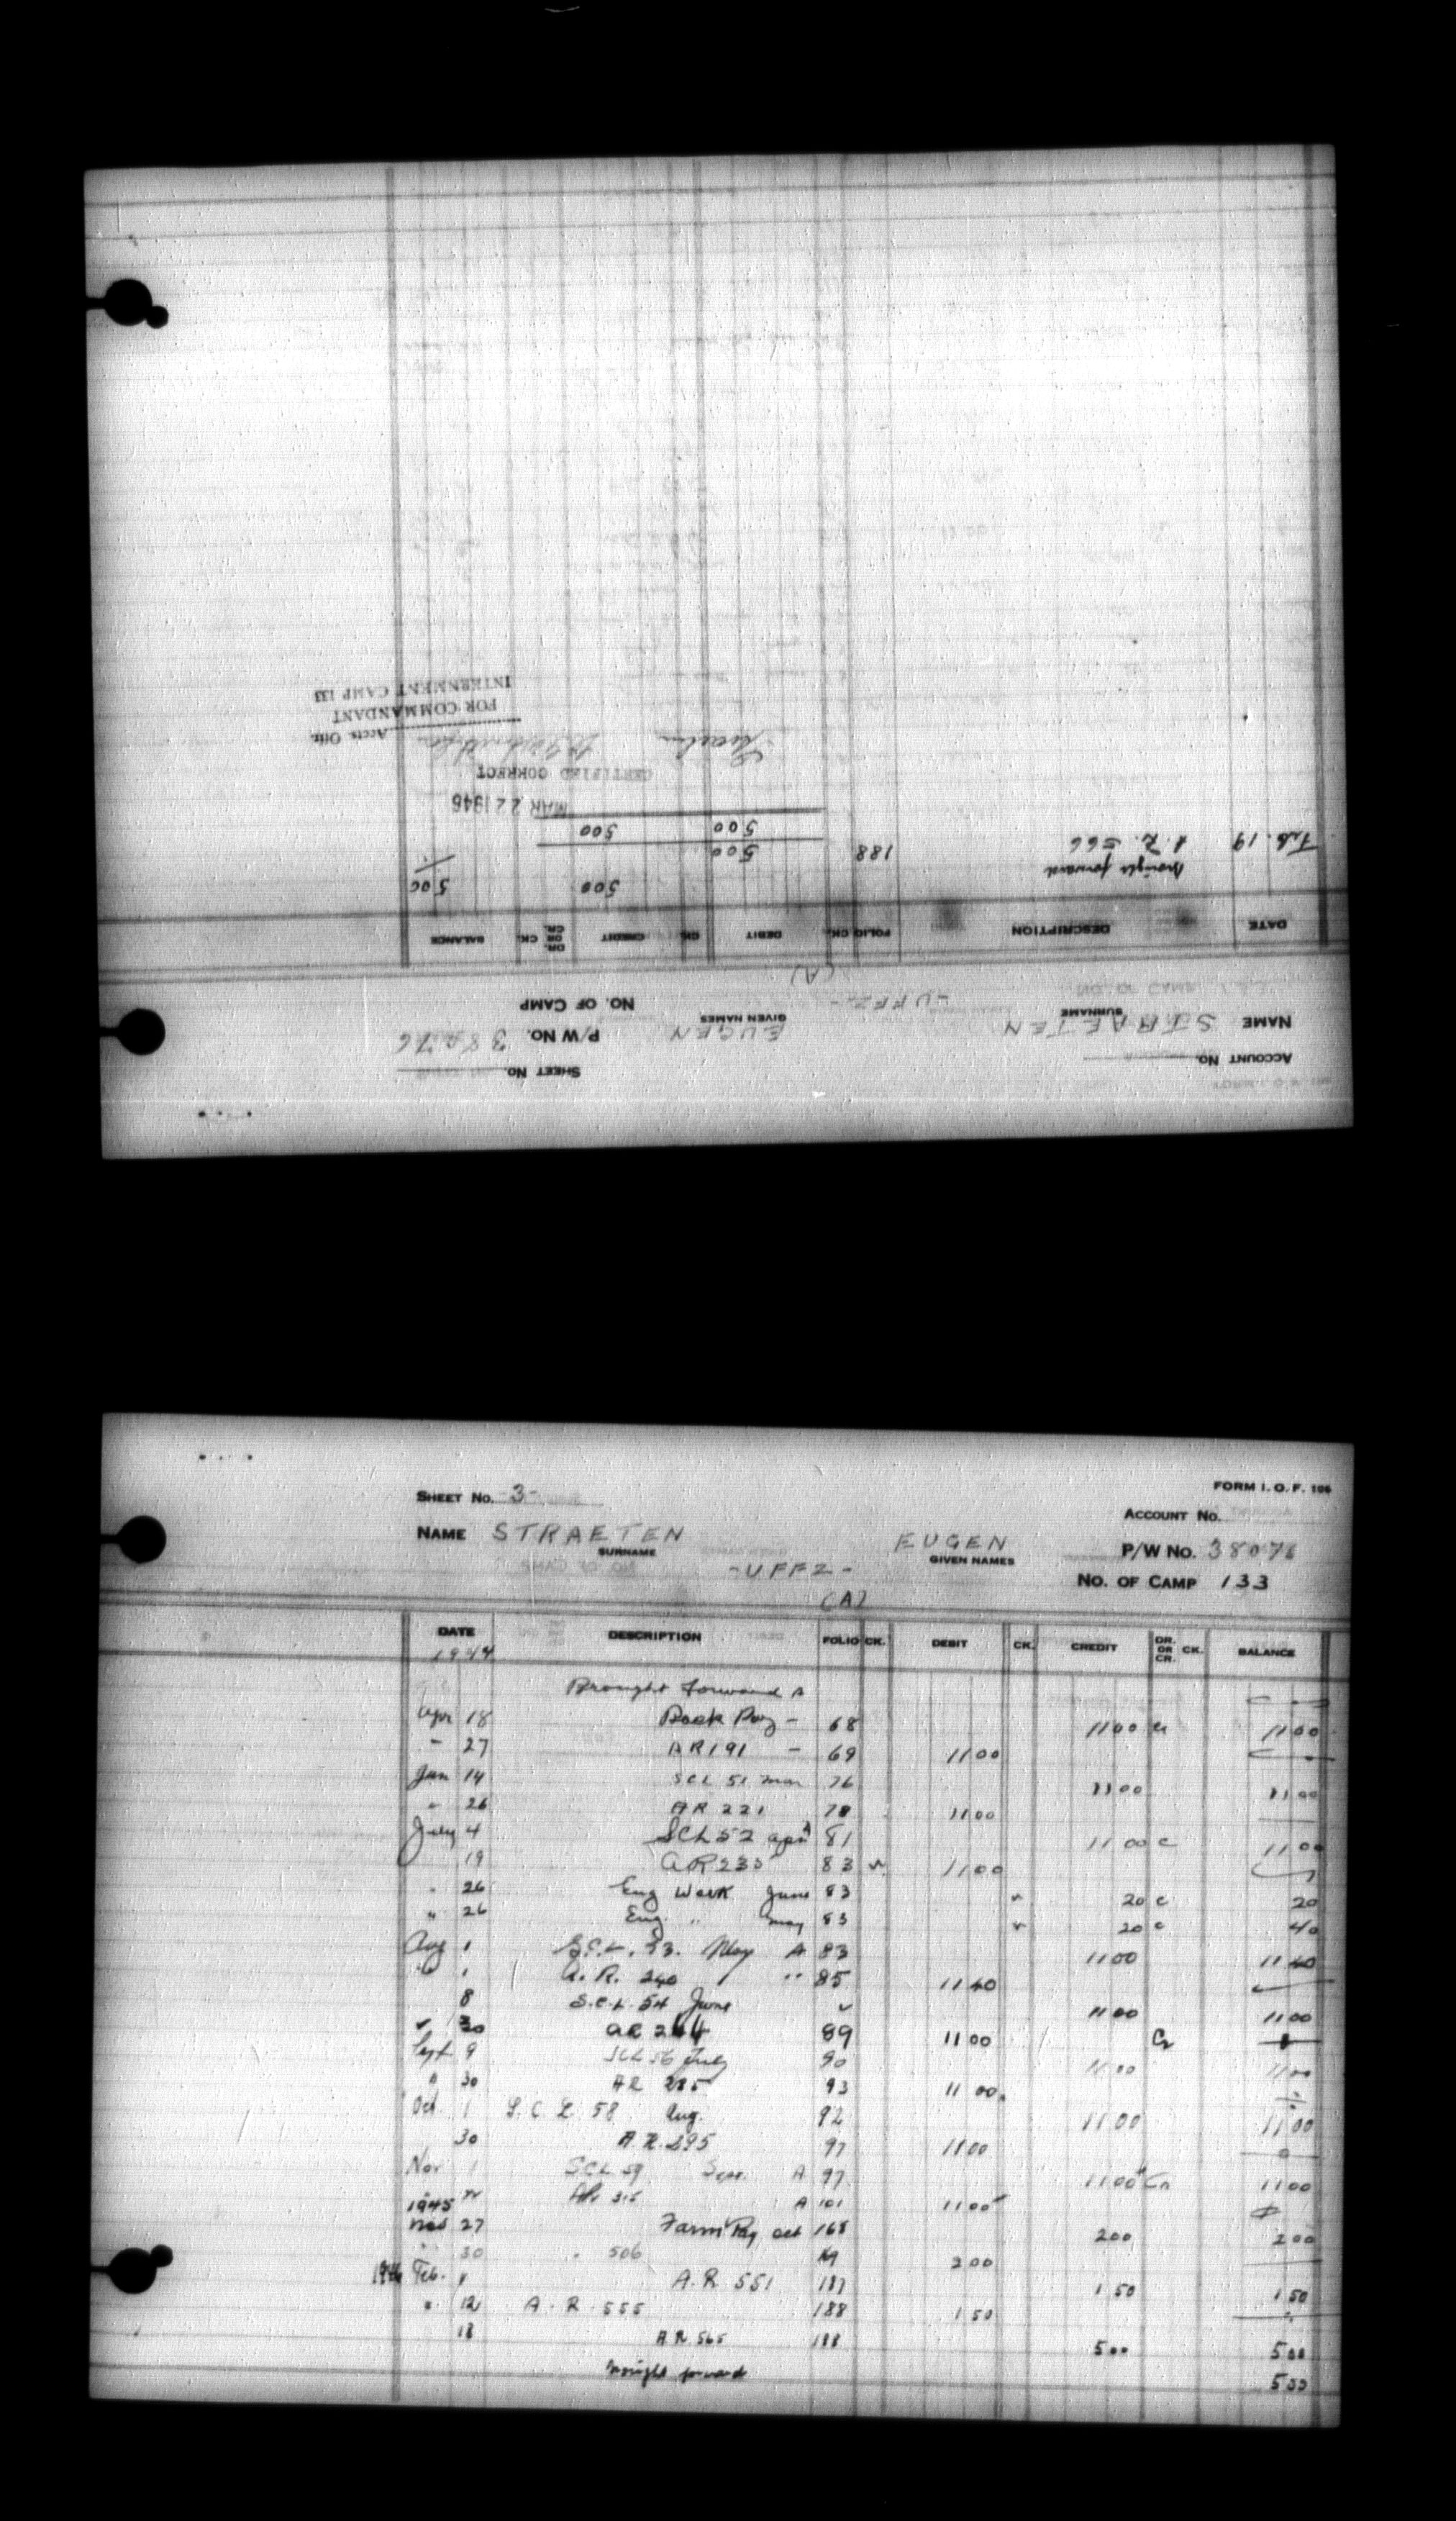 ACCOUNT No. SHEET No.
NAME STRAETEN EUGEN P/W No. 38076
SURNAME GIVEN NAMES
-UFFZ- NO. OF CAMP
(A)
DATE DESCRIPTION FOLIO CK. DEBIT CK. CREDIT DR. OR CR. CK. BALANCE
brought forward 500 500
Feb. 19 A.R. 566 188 500
500 500
MAR 22 1946
CERTIFIED CORRECT
Accts. Offr.
FOR COMMANDANT
INTERNMENT CAMP 133
FORM I. O. F. 106
SHEET No. -3- ACCOUNT No.
NAME STRAETEN EUGEN P/W No. 38076
SURNAME GIVEN NAMES
-UFFZ- NO. OF CAMP 133
(A)
DATE DESCRIPTION FOLIO CK. DEBIT CK. CREDIT DR. OR CR. CK. BALANCE
1944
Brought forward
Apr 18 Back Pay - 68 1100 cr 1100
" 27 AR 191 - 69 1100
Jun 14 SCL 51 Mar 76 1100 1100
" 26 AR 221 78 1100
July 4 SCL 52 apr 81 1100 c 1100
19 AR 235 83 1100
" 26 Eng Work June 83 20 c 20
" 26 Eng " May 83 20 c 40
Aug 1 S.C.L. 53. May A 83 1100 1140
" 1 A.R. 240 " 85 1140
8 S.C.L. 54 June 1100 1100
30 AR 244 89 1100 Cr
Sept 9 SCL 56 July 90 1100 1100
" 30 AR 285 93 1100
Oct. 1 S.C.L 58 Aug. 92 1100 1100
30 A.R. 295 97 1100
Nov 1 SCL 59 Sept. A 97 1100 Cr 1100
A 101 1100
1945
27 Farm Pay oct 168 200 200
30 " 506 200
1946 Feb. A.R. 551 187 1 50 1 50
" 12 A.R. 555 188 1 50
18 A.R. 565 188 500 500
brought forward 500